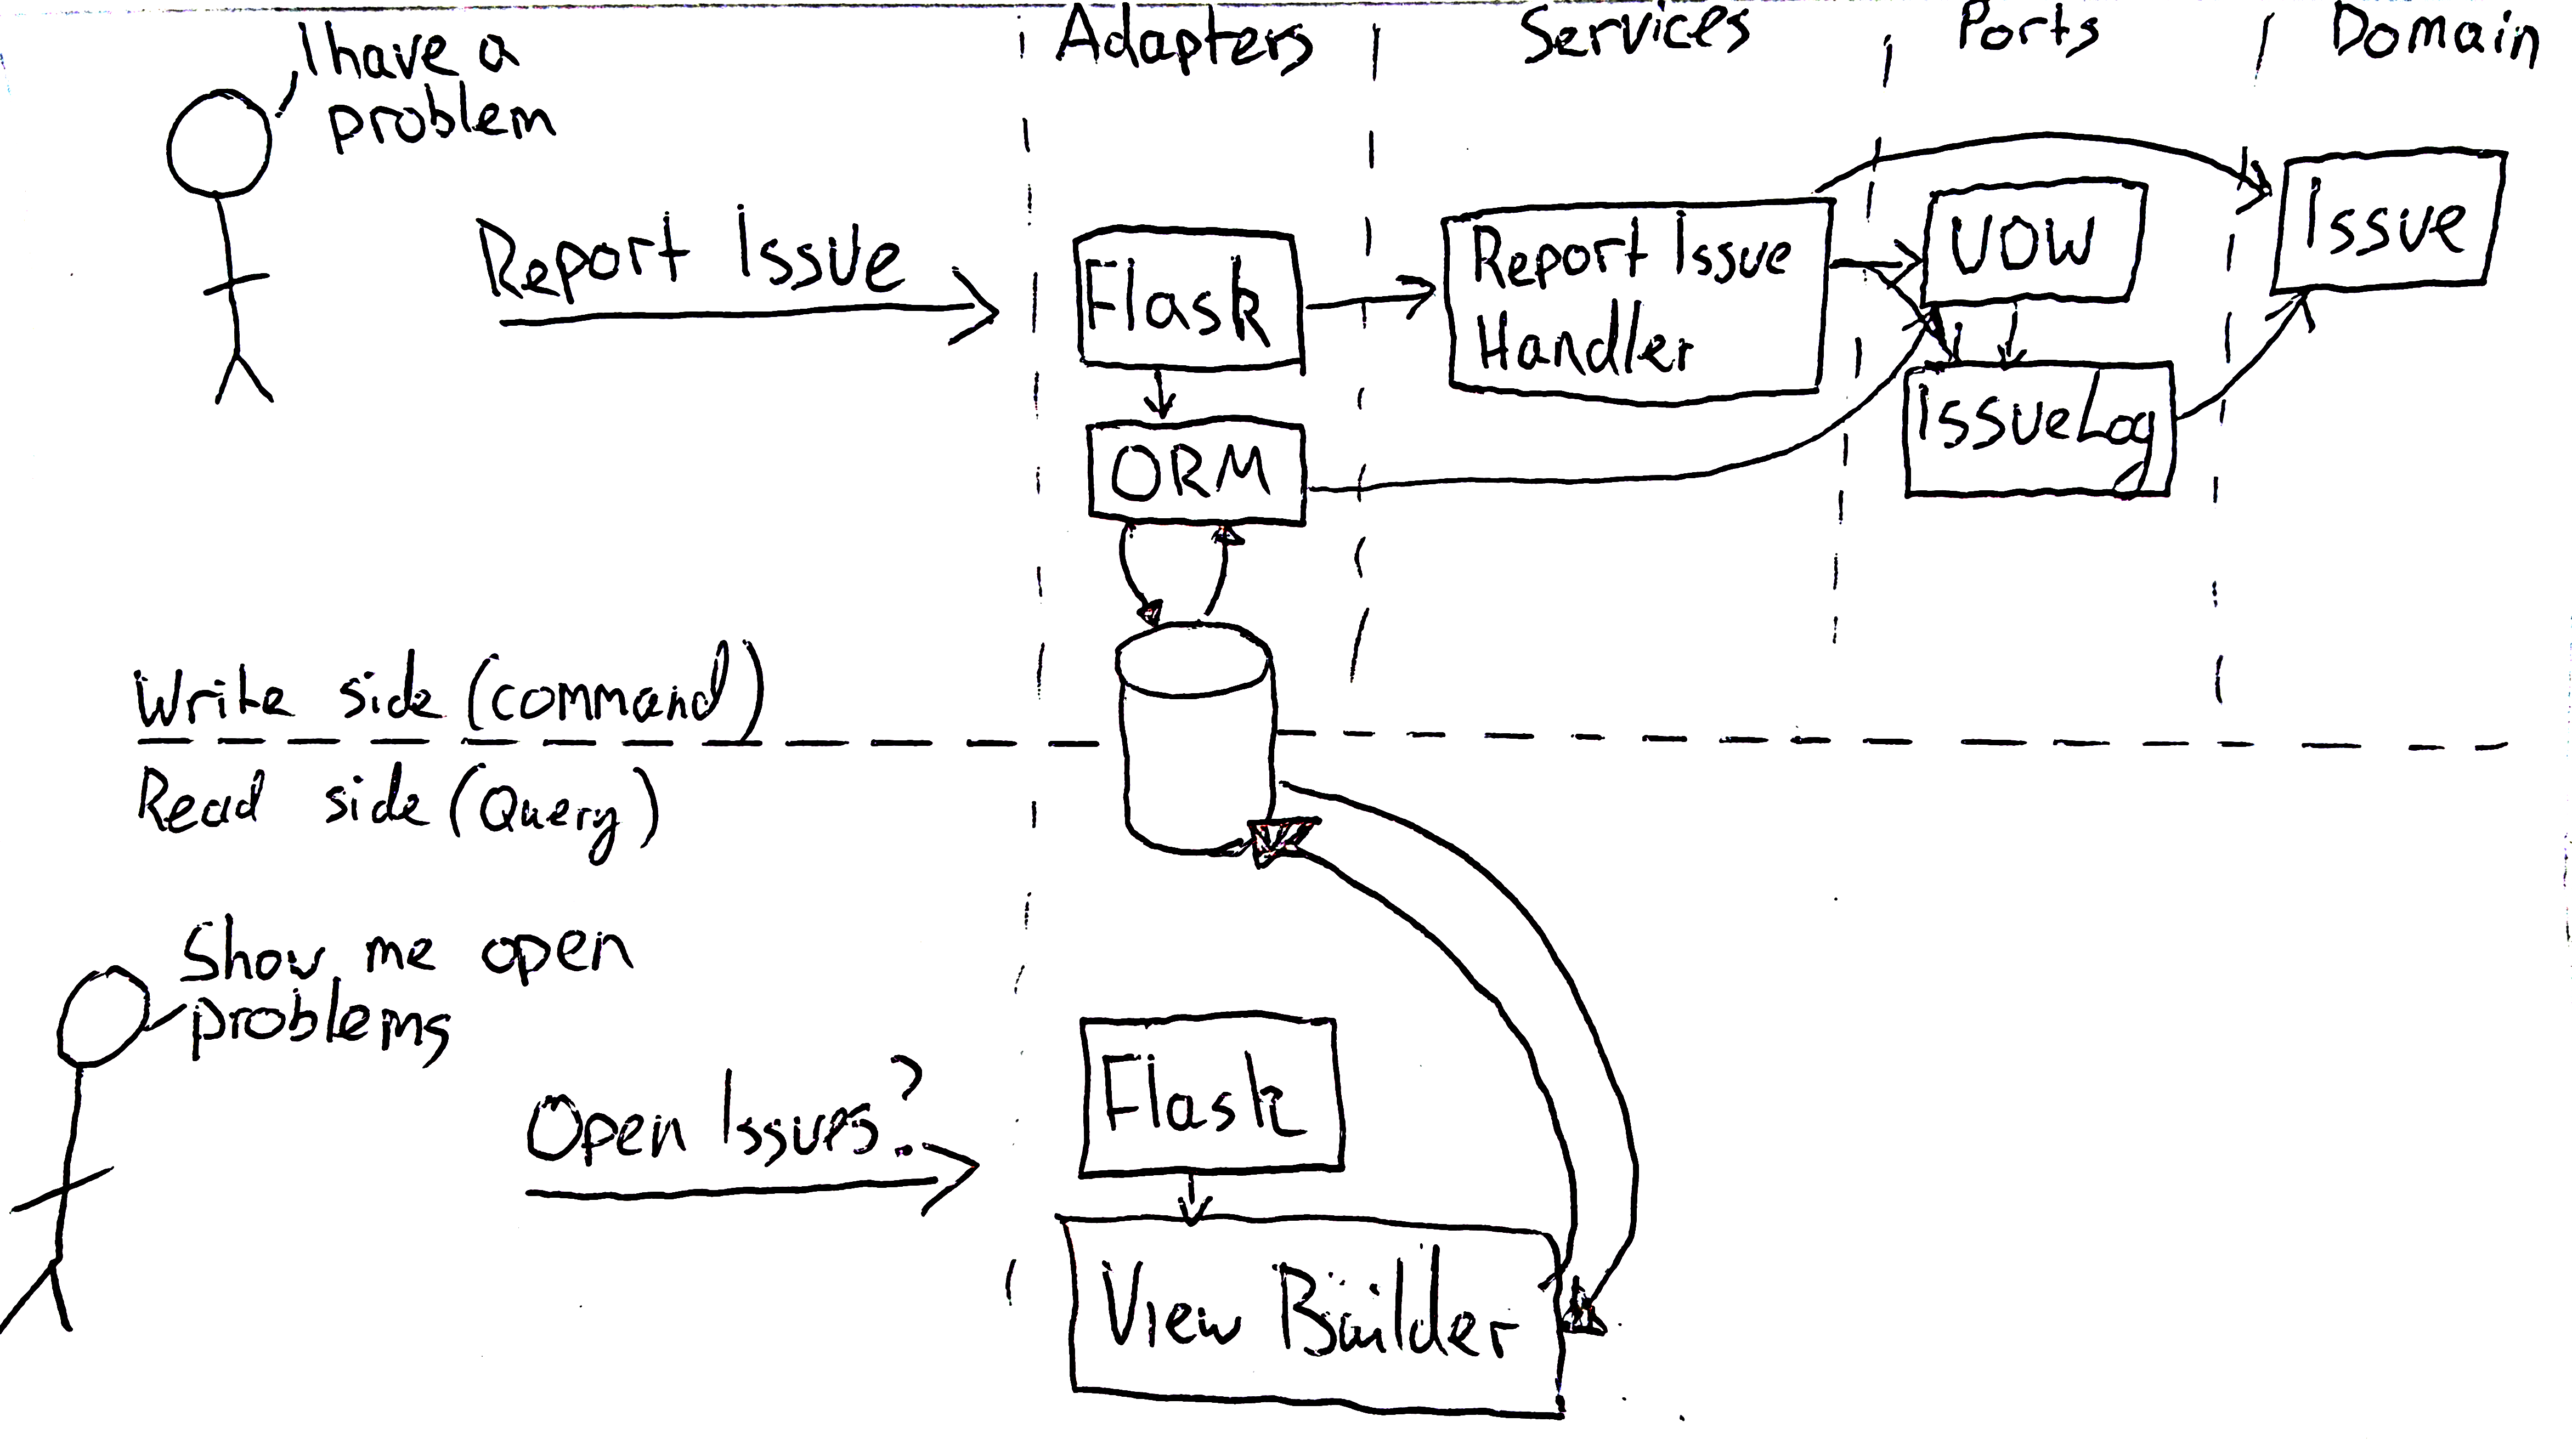 Adapters
Services
Ports
Domain
I have a
problem
Report Issue
Flask
Report Issue
Handler
UOW
Issue
IssueLog
ORM
Write side (command)
Read side (Query)
Show me open
problems
Open Issues?
Flask
View Builder